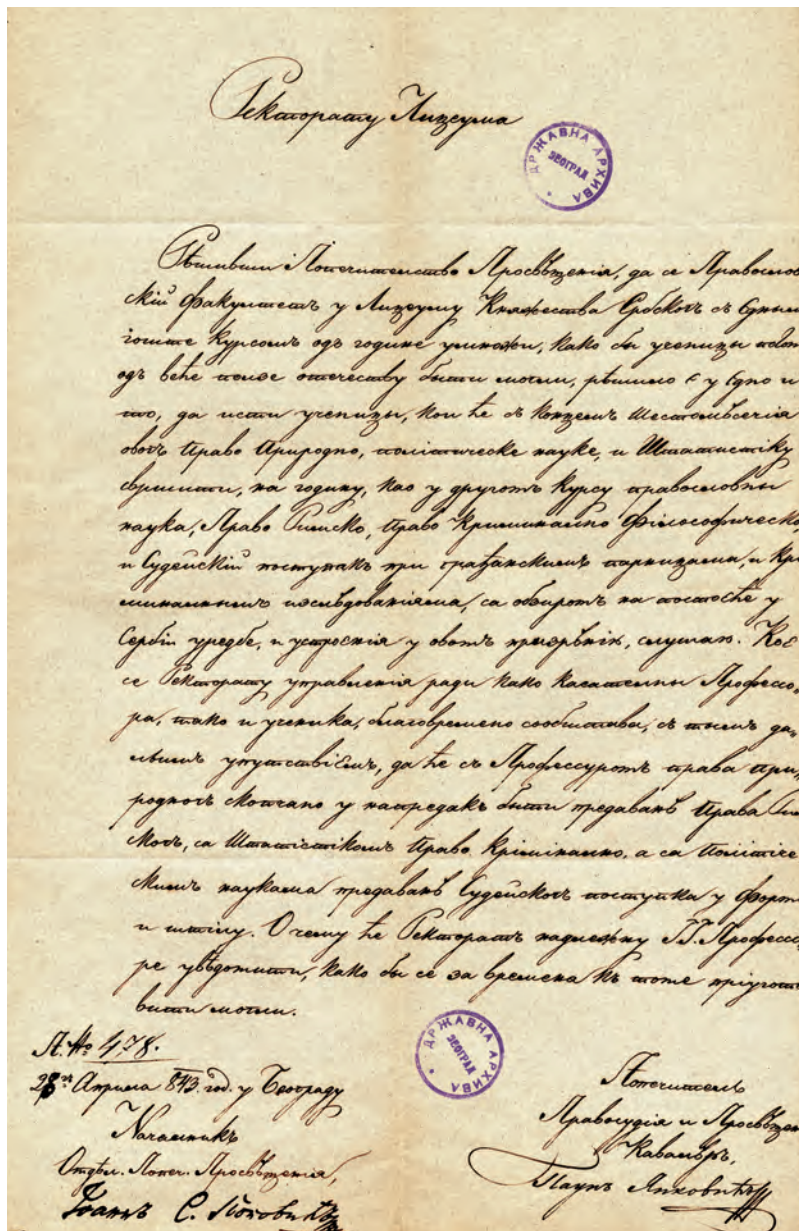 Ректорату Лицеума
ДРЖАВНА АРХИВА
БЕОГРАД
Рѣшивши Попечителство Просвѣщенія, да се Правослов
скій Факултетъ у Лицеуму Княжества Србскогъ съ Єдным
гоште Курсомъ одъ године умложи, како бы ученицы
одъ веће ползе отечеству быти могли, рѣшило є у єдно и
то, да исти ученицы, кои ће съ концемъ Шестомѣсечія
овогъ Право Природно, политическе науке, и Штатистіку
свршити, на годину, као у другомъ Курсу правословны
наука, Право Римско, право Криминално Філософическо,
и Судейскій поступакъ при грађанскимъ парницама, и Кри
миналнымъ изслѣдованіяма, са обзиромъ на постоєће у
Сербіи уредбе, и устроєнія у овомъ призрѣнію, слушаю. Коє
се Ректорату управленія ради како касателны Профессо„
ра, тако и ученика, благовремено сообштава, съ тымъ да„
льимъ упутствіємъ, да ће съ Профессуромъ права при„
родногъ скопчано у напредакъ быти предаванѣ Права Рим
скогъ, са Штатістікомъ Право Кріминално, а са Політіче
скимъ наукама предаванѣ Судейскогъ поступка у форми
и штілу. О чему ће Ректоратъ надлежну Г.Г. Профессо„
ре увѣдомити, како бы се за времена къ томе пріугото
вити могли.
П. № 478.
28 Априла 843. год. у Београду
Началникъ
Отдѣл. Попеч. Просвѣщенія,
Іоаннъ С. Поповићъ
ДРЖАВНА АРХИВА
БЕОГРАД
Попечитель
Правосудія и Просвѣщен
Кавалѣръ,
Паунъ Янковићъ